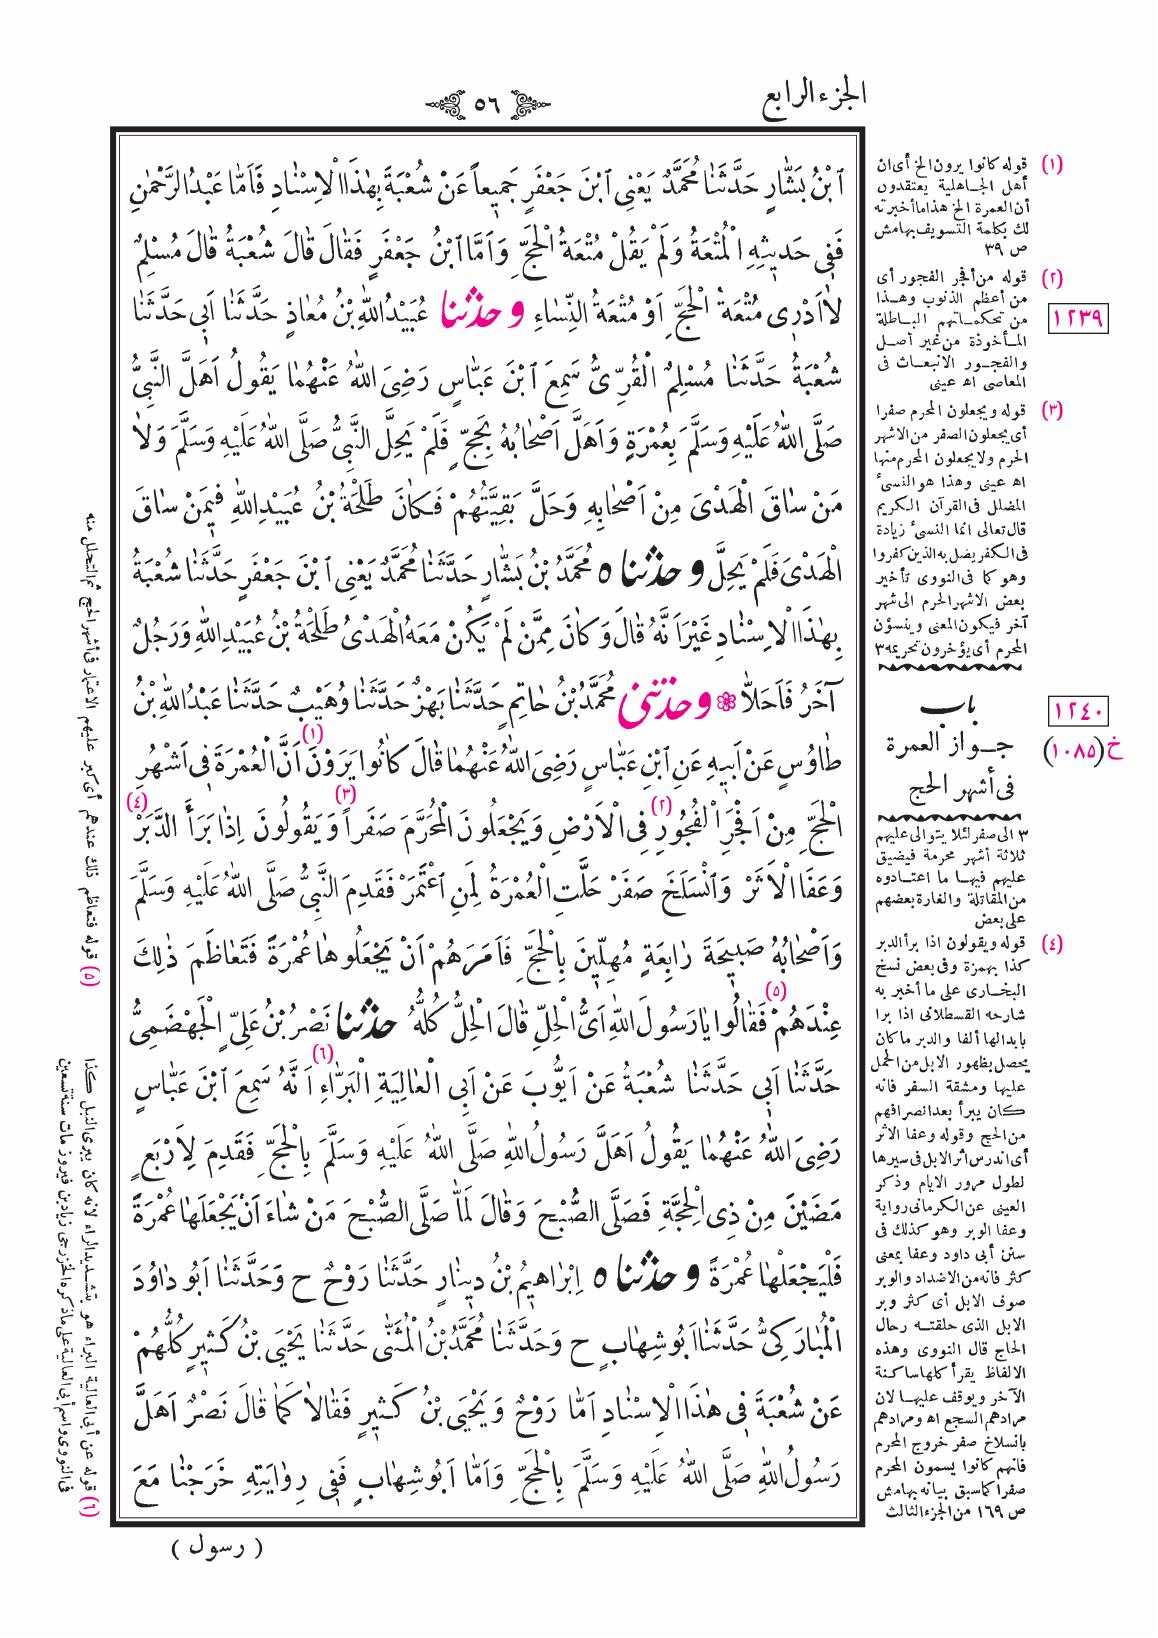 الجزء الرابع
٥٦
ٱبْنُ بَشَّارٍ حَدَّثَنَا مُحَمَّدٌ يَعْنِى ٱبْنَ جَعْفَرٍ جَمِيعاً عَنْ شُعْبَةَ بِهٰذَا الْاِسْنَادِ فَاَمَّا عَبْدُ الرَّحْمٰنِ
فَفِى حَدِيثِهِ الْمُتْعَةُ وَلَمْ يَقُلْ مُتْعَةُ الْحَجِّ وَاَمَّا ٱبْنُ جَعْفَرٍ فَقَالَ قَالَ شُعْبَةُ قَالَ مُسْلِمٌ
لَا اَدْرِى مُتْعَةُ الْحَجِّ اَوْ مُتْعَةُ النِّسَاءِ وحدثنا عُبَيْدُ اللهِ بْنُ مُعَاذٍ حَدَّثَنَا اَبِى حَدَّثَنَا
شُعْبَةُ حَدَّثَنَا مُسْلِمٌ الْقُرِّىُّ سَمِعَ ٱبْنَ عَبَّاسٍ رَضِىَ اللهُ عَنْهُمَا يَقُولُ اَهَلَّ النَّبِىُّ
صَلَّى اللهُ عَلَيْهِ وَسَلَّمَ بِعُمْرَةٍ وَاَهَلَّ اَصْحَابُهُ بِحَجٍّ فَلَمْ يَحِلَّ النَّبِىُّ صَلَّى اللهُ عَلَيْهِ وَسَلَّمَ وَلَا
مَنْ سَاقَ الْهَدْىَ مِنْ اَصْحَابِهِ وَحَلَّ بَقِيَّتُهُمْ فَكَانَ طَلْحَةُ بْنُ عُبَيْدِ اللهِ فِيمَنْ سَاقَ
الْهَدْىَ فَلَمْ يَحِلَّ وحدثناه مُحَمَّدُ بْنُ بَشَّارٍ حَدَّثَنَا مُحَمَّدٌ يَعْنِى ٱبْنَ جَعْفَرٍ حَدَّثَنَا شُعْبَةُ
بِهٰذَا الْاِسْنَادِ غَيْرَ اَنَّهُ قَالَ وَكَانَ مِمَّنْ لَمْ يَكُنْ مَعَهُ الْهَدْىُ طَلْحَةُ بْنُ عُبَيْدِ اللهِ وَرَجُلٌ
آخَرُ فَاَحَلَّا وحدثنى مُحَمَّدُ بْنُ حَاتِمٍ حَدَّثَنَا بَهْزٌ حَدَّثَنَا وُهَيْبٌ حَدَّثَنَا عَبْدُ اللهِ بْنُ
طَاوُسٍ عَنْ اَبِيهِ عَنِ ابْنِ عَبَّاسٍ رَضِىَ اللهُ عَنْهُمَا قَالَ كَانُوا يَرَوْنَ (١) اَنَّ الْعُمْرَةَ فِى اَشْهُرِ
الْحَجِّ مِنْ اَفْجَرِ الْفُجُورِ (٢) فِى الْاَرْضِ وَيَجْعَلُونَ الْمُحَرَّمَ صَفَراً (٣) وَيَقُولُونَ اِذَا بَرَأَ الدَّبَرْ (٤)
وَعَفَا الْاَثَرْ وَٱنْسَلَخَ صَفَرْ حَلَّتِ الْعُمْرَةُ لِمَنِ ٱعْتَمَرْ فَقَدِمَ النَّبِىُّ صَلَّى اللهُ عَلَيْهِ وَسَلَّمَ
وَاَصْحَابُهُ صَبِيحَةَ رَابِعَةٍ مُهِلِّينَ بِالْحَجِّ فَاَمَرَهُمْ اَنْ يَجْعَلُوهَا عُمْرَةً فَتَعَاظَمَ ذٰلِكَ
عِنْدَهُمْ (٥) فَقَالُوا يَا رَسُولَ اللهِ اَىُّ الْحِلِّ قَالَ الْحِلُّ كُلُّهُ حدثنا نَصْرُ بْنُ عَلِىٍّ الْجَهْضَمِىُّ
حَدَّثَنَا اَبِى حَدَّثَنَا شُعْبَةُ عَنْ اَيُّوبَ عَنْ اَبِى الْعَالِيَةِ الْبَرَّاءِ (٦) اَنَّهُ سَمِعَ ٱبْنَ عَبَّاسٍ
رَضِىَ اللهُ عَنْهُمَا يَقُولُ اَهَلَّ رَسُولُ اللهِ صَلَّى اللهُ عَلَيْهِ وَسَلَّمَ بِالْحَجِّ فَقَدِمَ لِاَرْبَعٍ
مَضَيْنَ مِنْ ذِى الْحِجَّةِ فَصَلَّى الصُّبْحَ وَقَالَ لَمَّا صَلَّى الصُّبْحَ مَنْ شَاءَ اَنْ يَجْعَلَهَا عُمْرَةً
فَلْيَجْعَلْهَا عُمْرَةً وحدثناه اِبْرَاهِيمُ بْنُ دِينَارٍ حَدَّثَنَا رَوْحٌ ح وَحَدَّثَنَا اَبُو دَاوُدَ
الْمُبَارَكِىُّ حَدَّثَنَا اَبُو شِهَابٍ ح وَحَدَّثَنَا مُحَمَّدُ بْنُ الْمُثَنَّى حَدَّثَنَا يَحْيَى بْنُ كَثِيرٍ كُلُّهُمْ
عَنْ شُعْبَةَ فِى هٰذَا الْاِسْنَادِ اَمَّا رَوْحٌ وَيَحْيَى بْنُ كَثِيرٍ فَقَالَا كَمَا قَالَ نَصْرٌ اَهَلَّ
رَسُولُ اللهِ صَلَّى اللهُ عَلَيْهِ وَسَلَّمَ بِالْحَجِّ وَاَمَّا اَبُو شِهَابٍ فَفِى رِوَايَتِهِ خَرَجْنَا مَعَ
( رسول )
(١) قوله كانوا يرون الخ أى ان
أهل الجاهلية يعتقدون
أن العمرة الخ هذا ما أخبرته
لك بكلمة التسويف بهامش
ص ٣٩
(٢) قوله من أفجر الفجور أى
من أعظم الذنوب وهذا
١٢٣٩
من تحكماتهم الباطلة
المأخوذة من غير أصل
والفجور الانبعاث فى
المعاصى اه عينى
(٣) قوله ويجعلون المحرم صفرا
أى يجعلون الصفر من الاشهر
الحرم ولا يجعلون المحرم منها
اه عينى وهذا هو النسىء
المضلل فى القرآن الكريم
قال تعالى انما النسىء زيادة
فى الكفر يضل به الذين كفروا
وهو كما فى النووى تأخير
بعض الاشهر الحرم الى شهر
آخر فيكون المعنى وينسؤن
المحرم أى يؤخرون تحريمه ٣
باب
جواز العمرة
فى أشهر الحج
١٢٤٠
خ (١٠٨٥)
٣ الى صفر لئلا يتوالى عليهم
ثلاثة أشهر محرمة فيضيق
عليهم فيها ما اعتادوه
من المقاتلة والغارة بعضهم
على بعض
(٤) قوله ويقولون اذا برأ الدبر
كذا بهمزة وفى بعض نسخ
البخارى على ما أخبر به
شارحه القسطلانى اذا برا
بابدالها ألفا والدبر ما كان
يحصل بظهور الابل من الحمل
عليها ومشقة السفر فانه
كان يبرأ بعد انصرافهم
من الحج وقوله وعفا الاثر
أى اندرس أثر الابل فى سيرها
لطول مرور الايام وذكر
العينى عن الكرمانى رواية
وعفا الوبر وهو كذلك فى
سنن أبى داود وعفا بمعنى
كثر فانه من الاضداد والوبر
صوف الابل أى كثر وبر
الابل الذى حلقته رحال
الحاج قال النووى وهذه
الالفاظ يقرأ كلها ساكنة
الآخر ويوقف عليها لان
مرادهم السجع اه ومرادهم
بانسلاخ صفر خروج المحرم
فانهم كانوا يسمون المحرم
صفرا كما سبق بيانه بهامش
ص ١٦٩ من الجزء الثالث
(٥) قوله فتعاظم ذلك عندهم أى كبر عليهم الاعتمار فى أشهر الحج ثم التحلل منه
(٦) قوله عن أبى العالية البراء هو بتشديد الراء لانه كان يبرى النبل كذا
فى النووى واسم أبى العالية على ما ذكره الخزرجى زياد بن فيروز مات سنة تسعين